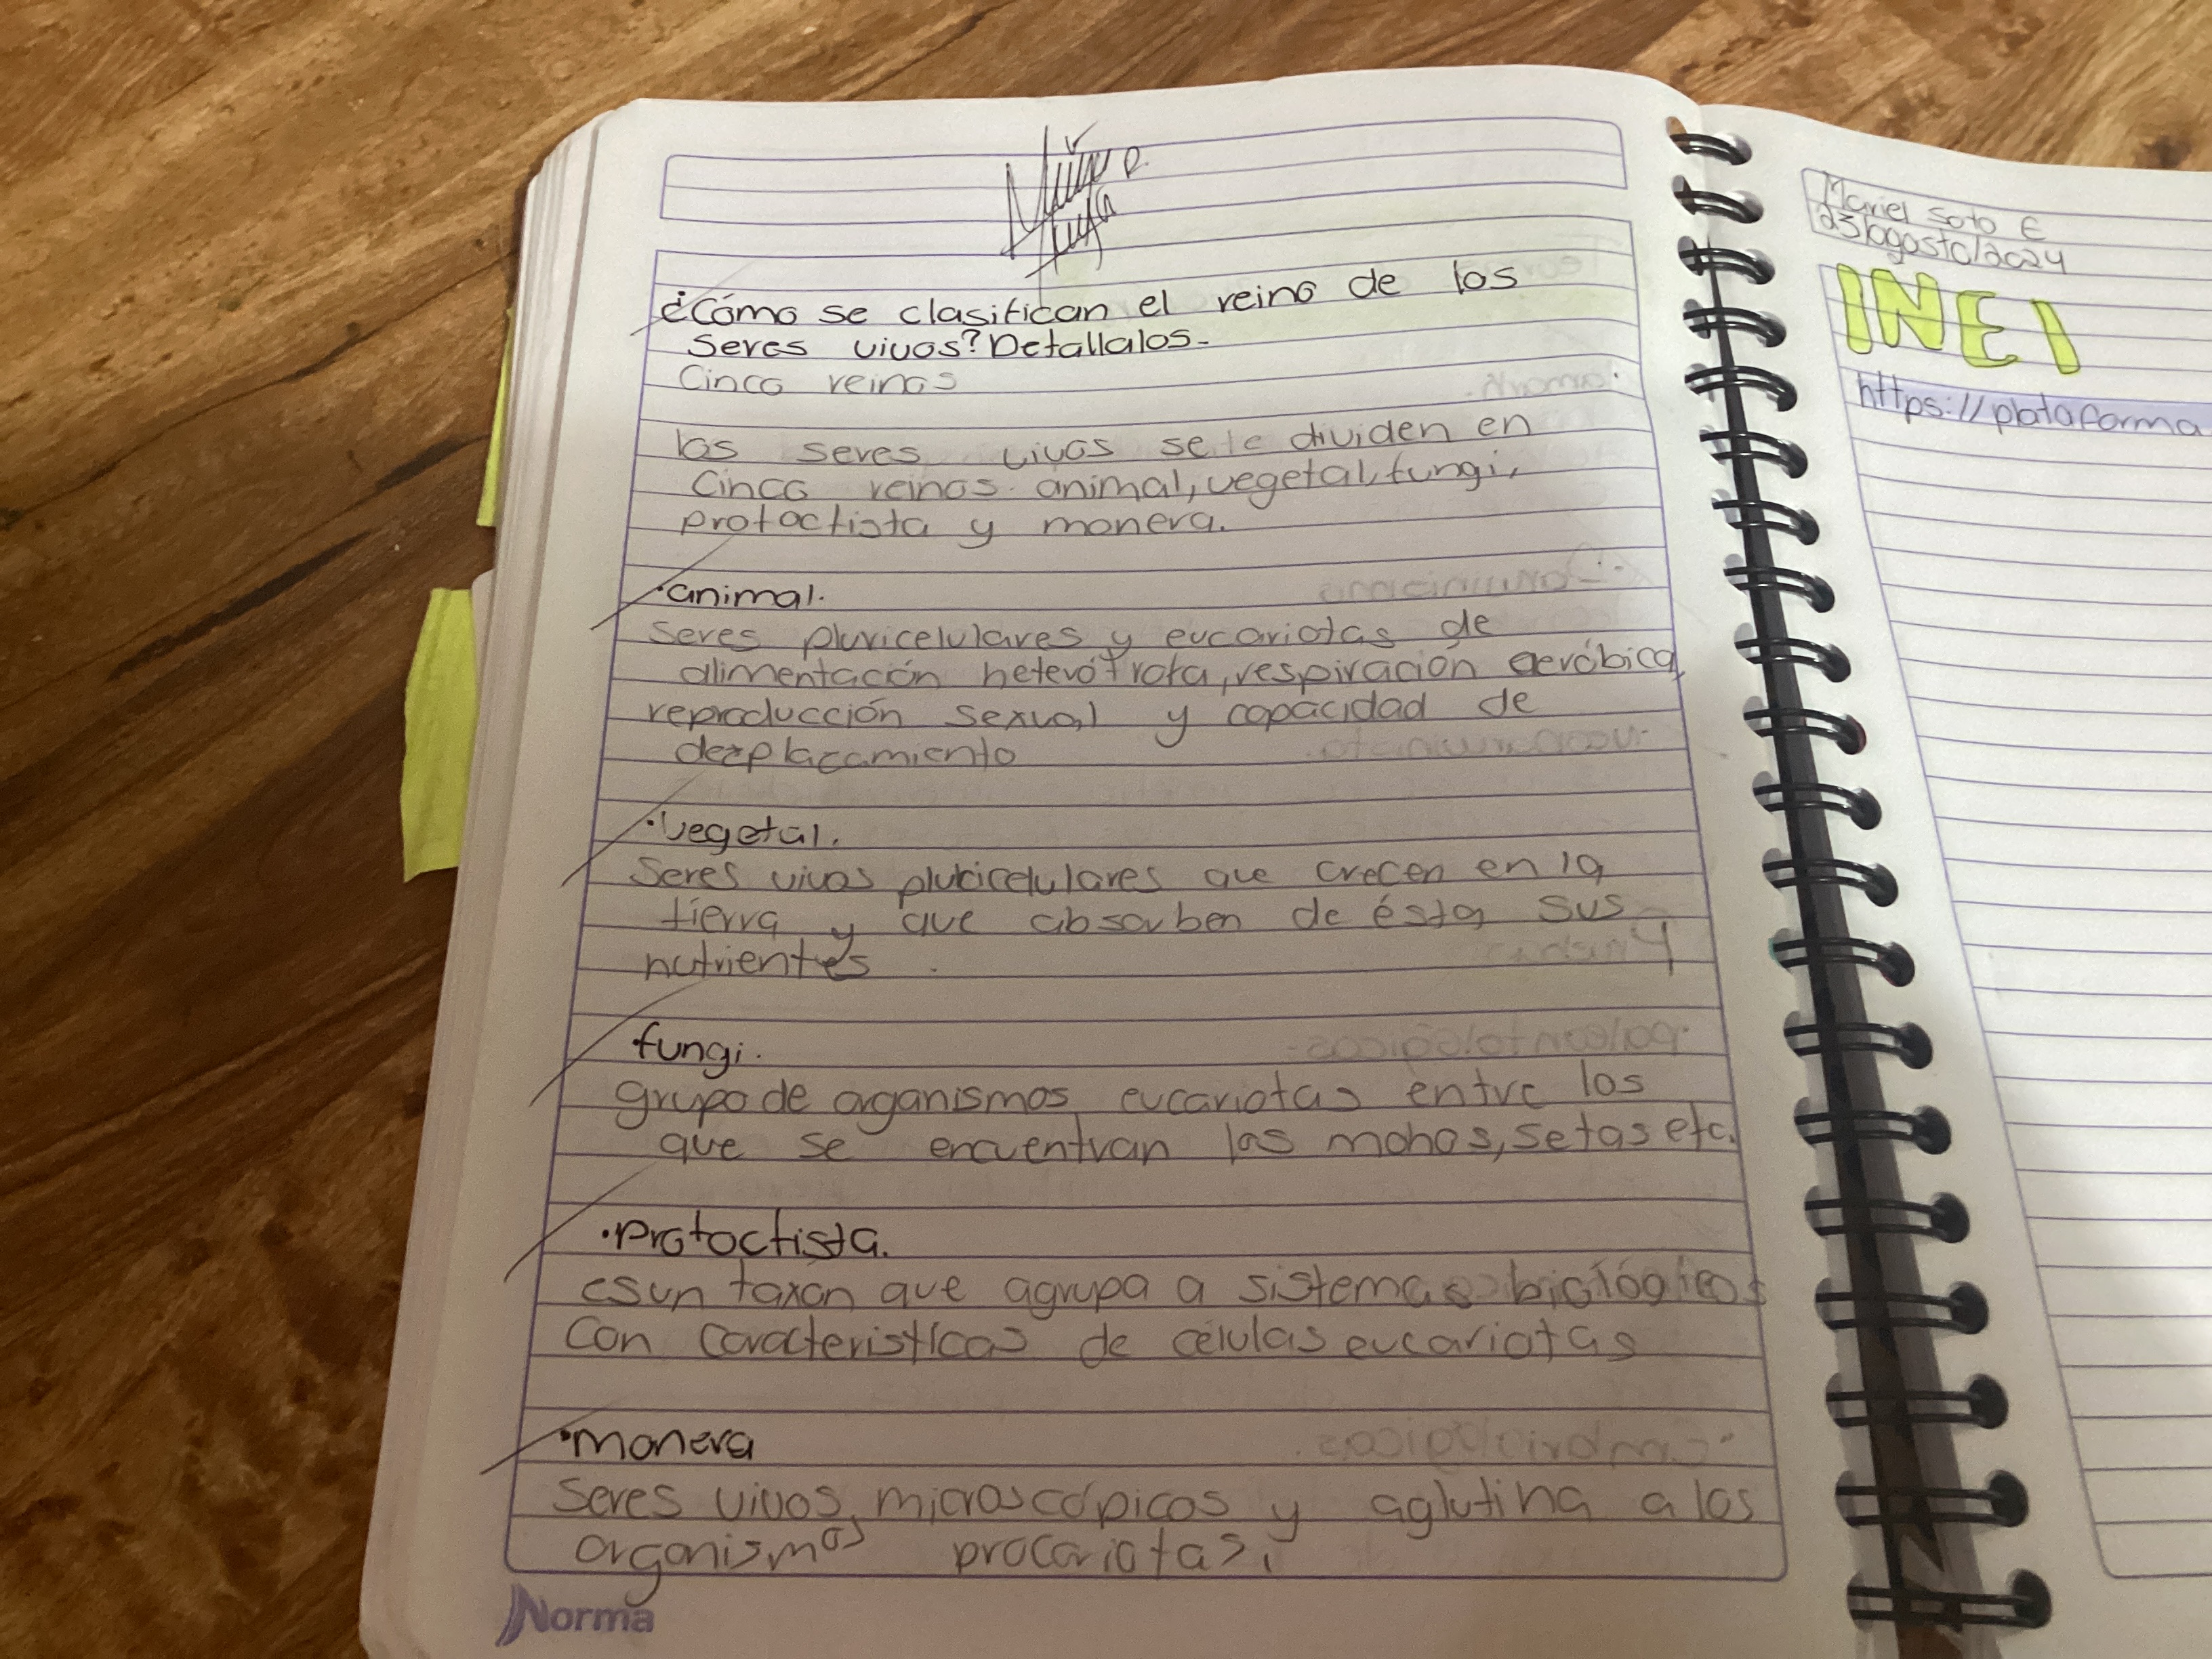 ¿Cómo se clasifican el reino de los
Seres vivos? Detallalos-
Cinco reinos
los seres vivos se le dividen en
Cinco reinos. animal, vegetal, fungi,
protoctista y monera.
·animal.
Seres pluricelulares y eucariotas de
alimentación heterótrofa, respiración aeróbica,
reproducción sexual y capacidad de
desplazamiento
·Vegetal.
Seres vivos pluricelulares que crecen en la
tierra y que absorben de ésta, sus
nutrientes
·fungi.
grupo de organismos eucariotas entre los
que se encuentran los mohos, setas etc.
·Protoctista.
es un taxón que agrupa a sistemas biológicos
Con caracteristicas de células eucariotas
·monera
Seres vivos, microscópicos y aglutina a los
organismos procariotas.
Norma
Mariel Soto E
23/agosto/2024
INEI
https://plataforma